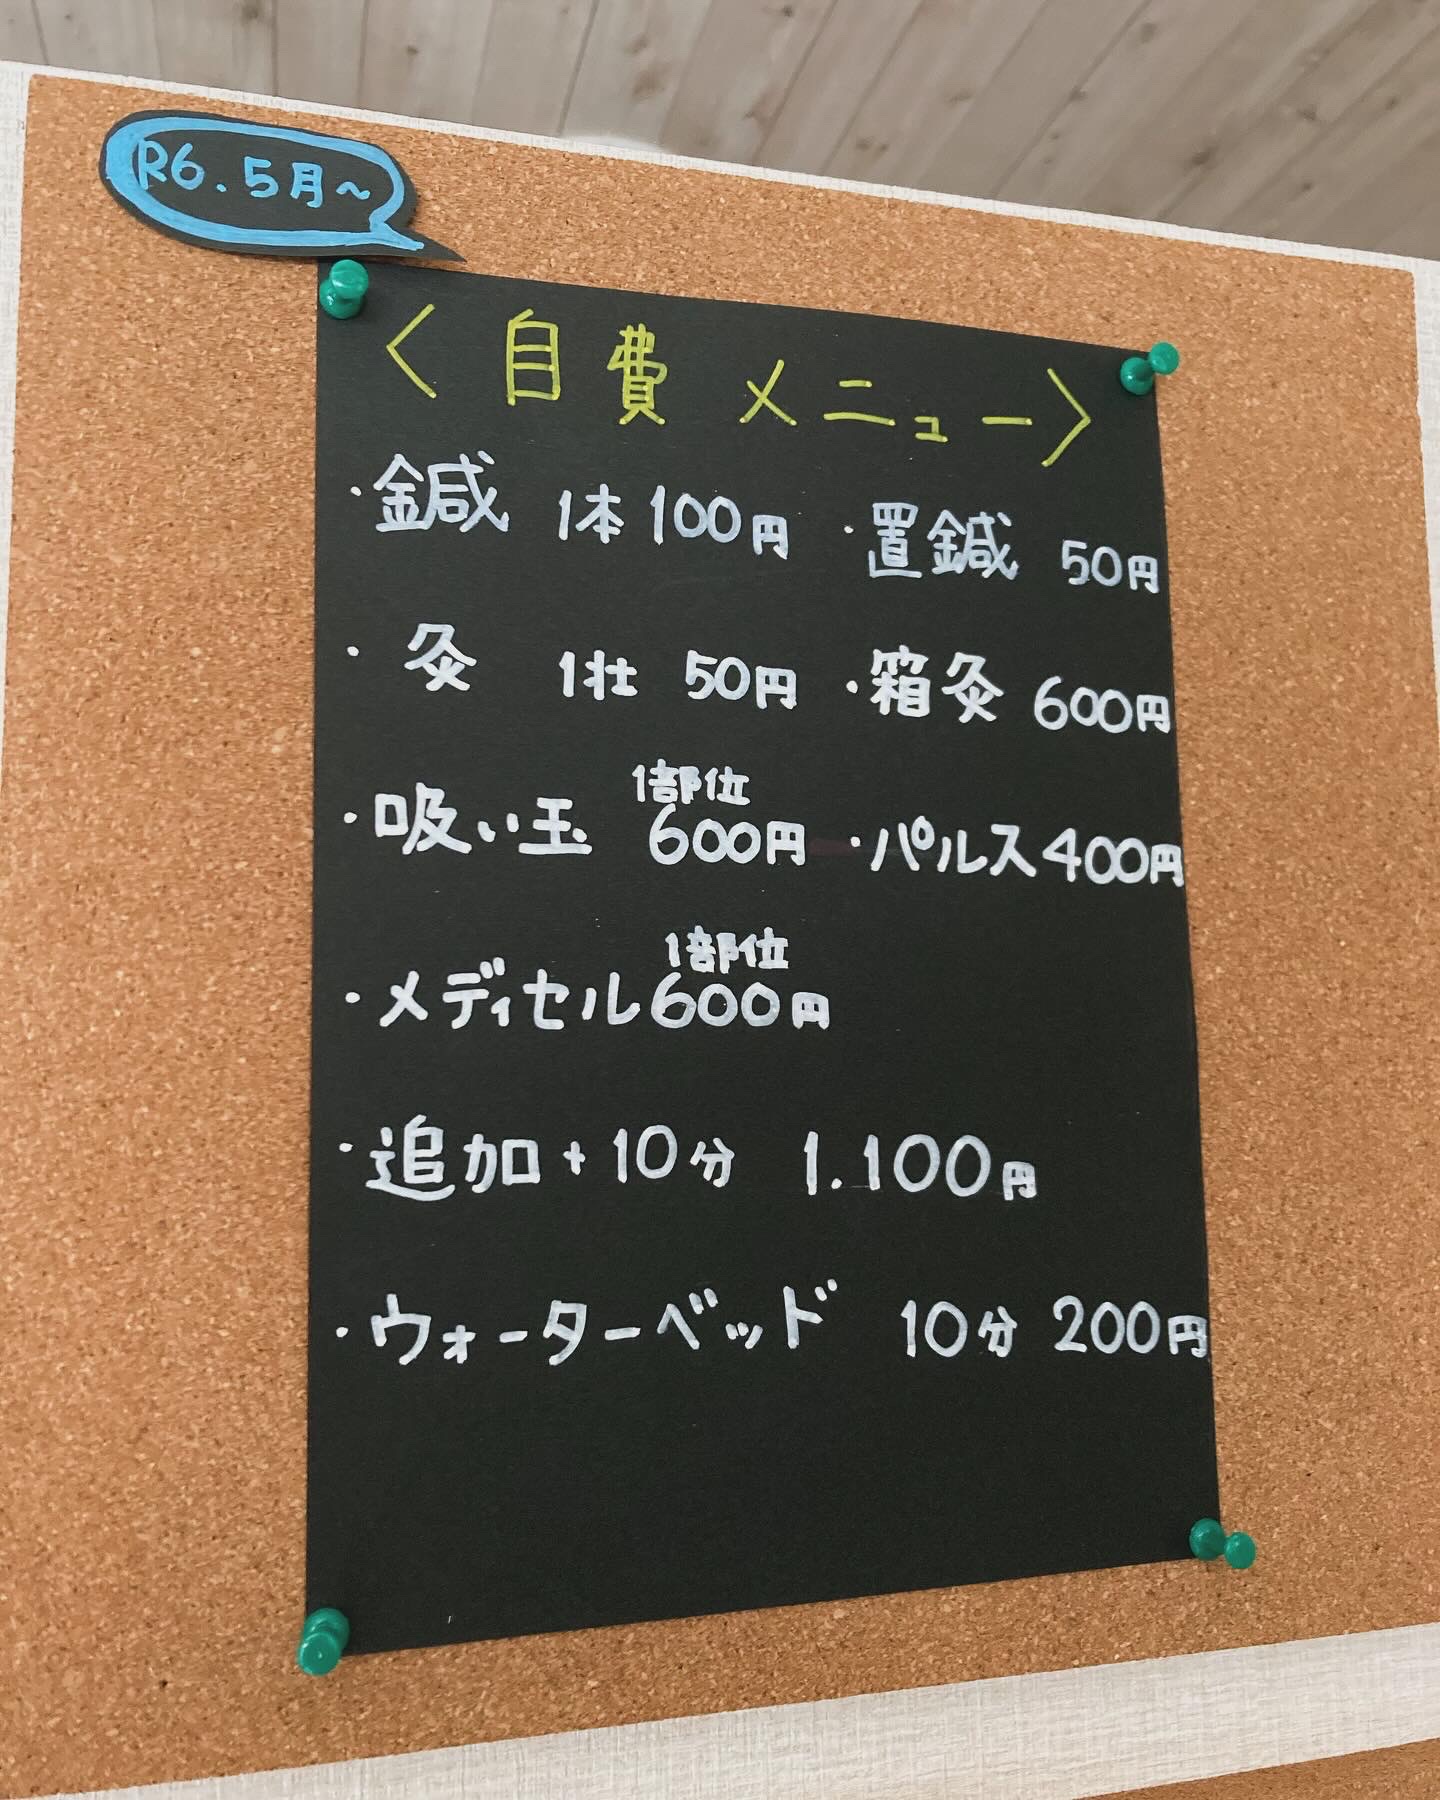 R6.5月~
<自費メニュー>
・鍼 1本100円 ・置鍼 50円
・灸 1壮 50円 ・箱灸 600円
1部位
・吸い玉 600円 ・パルス400円
1部位
・メディセル600円
・追加+10分 1.100円
・ウォーターベッド 10分 200円